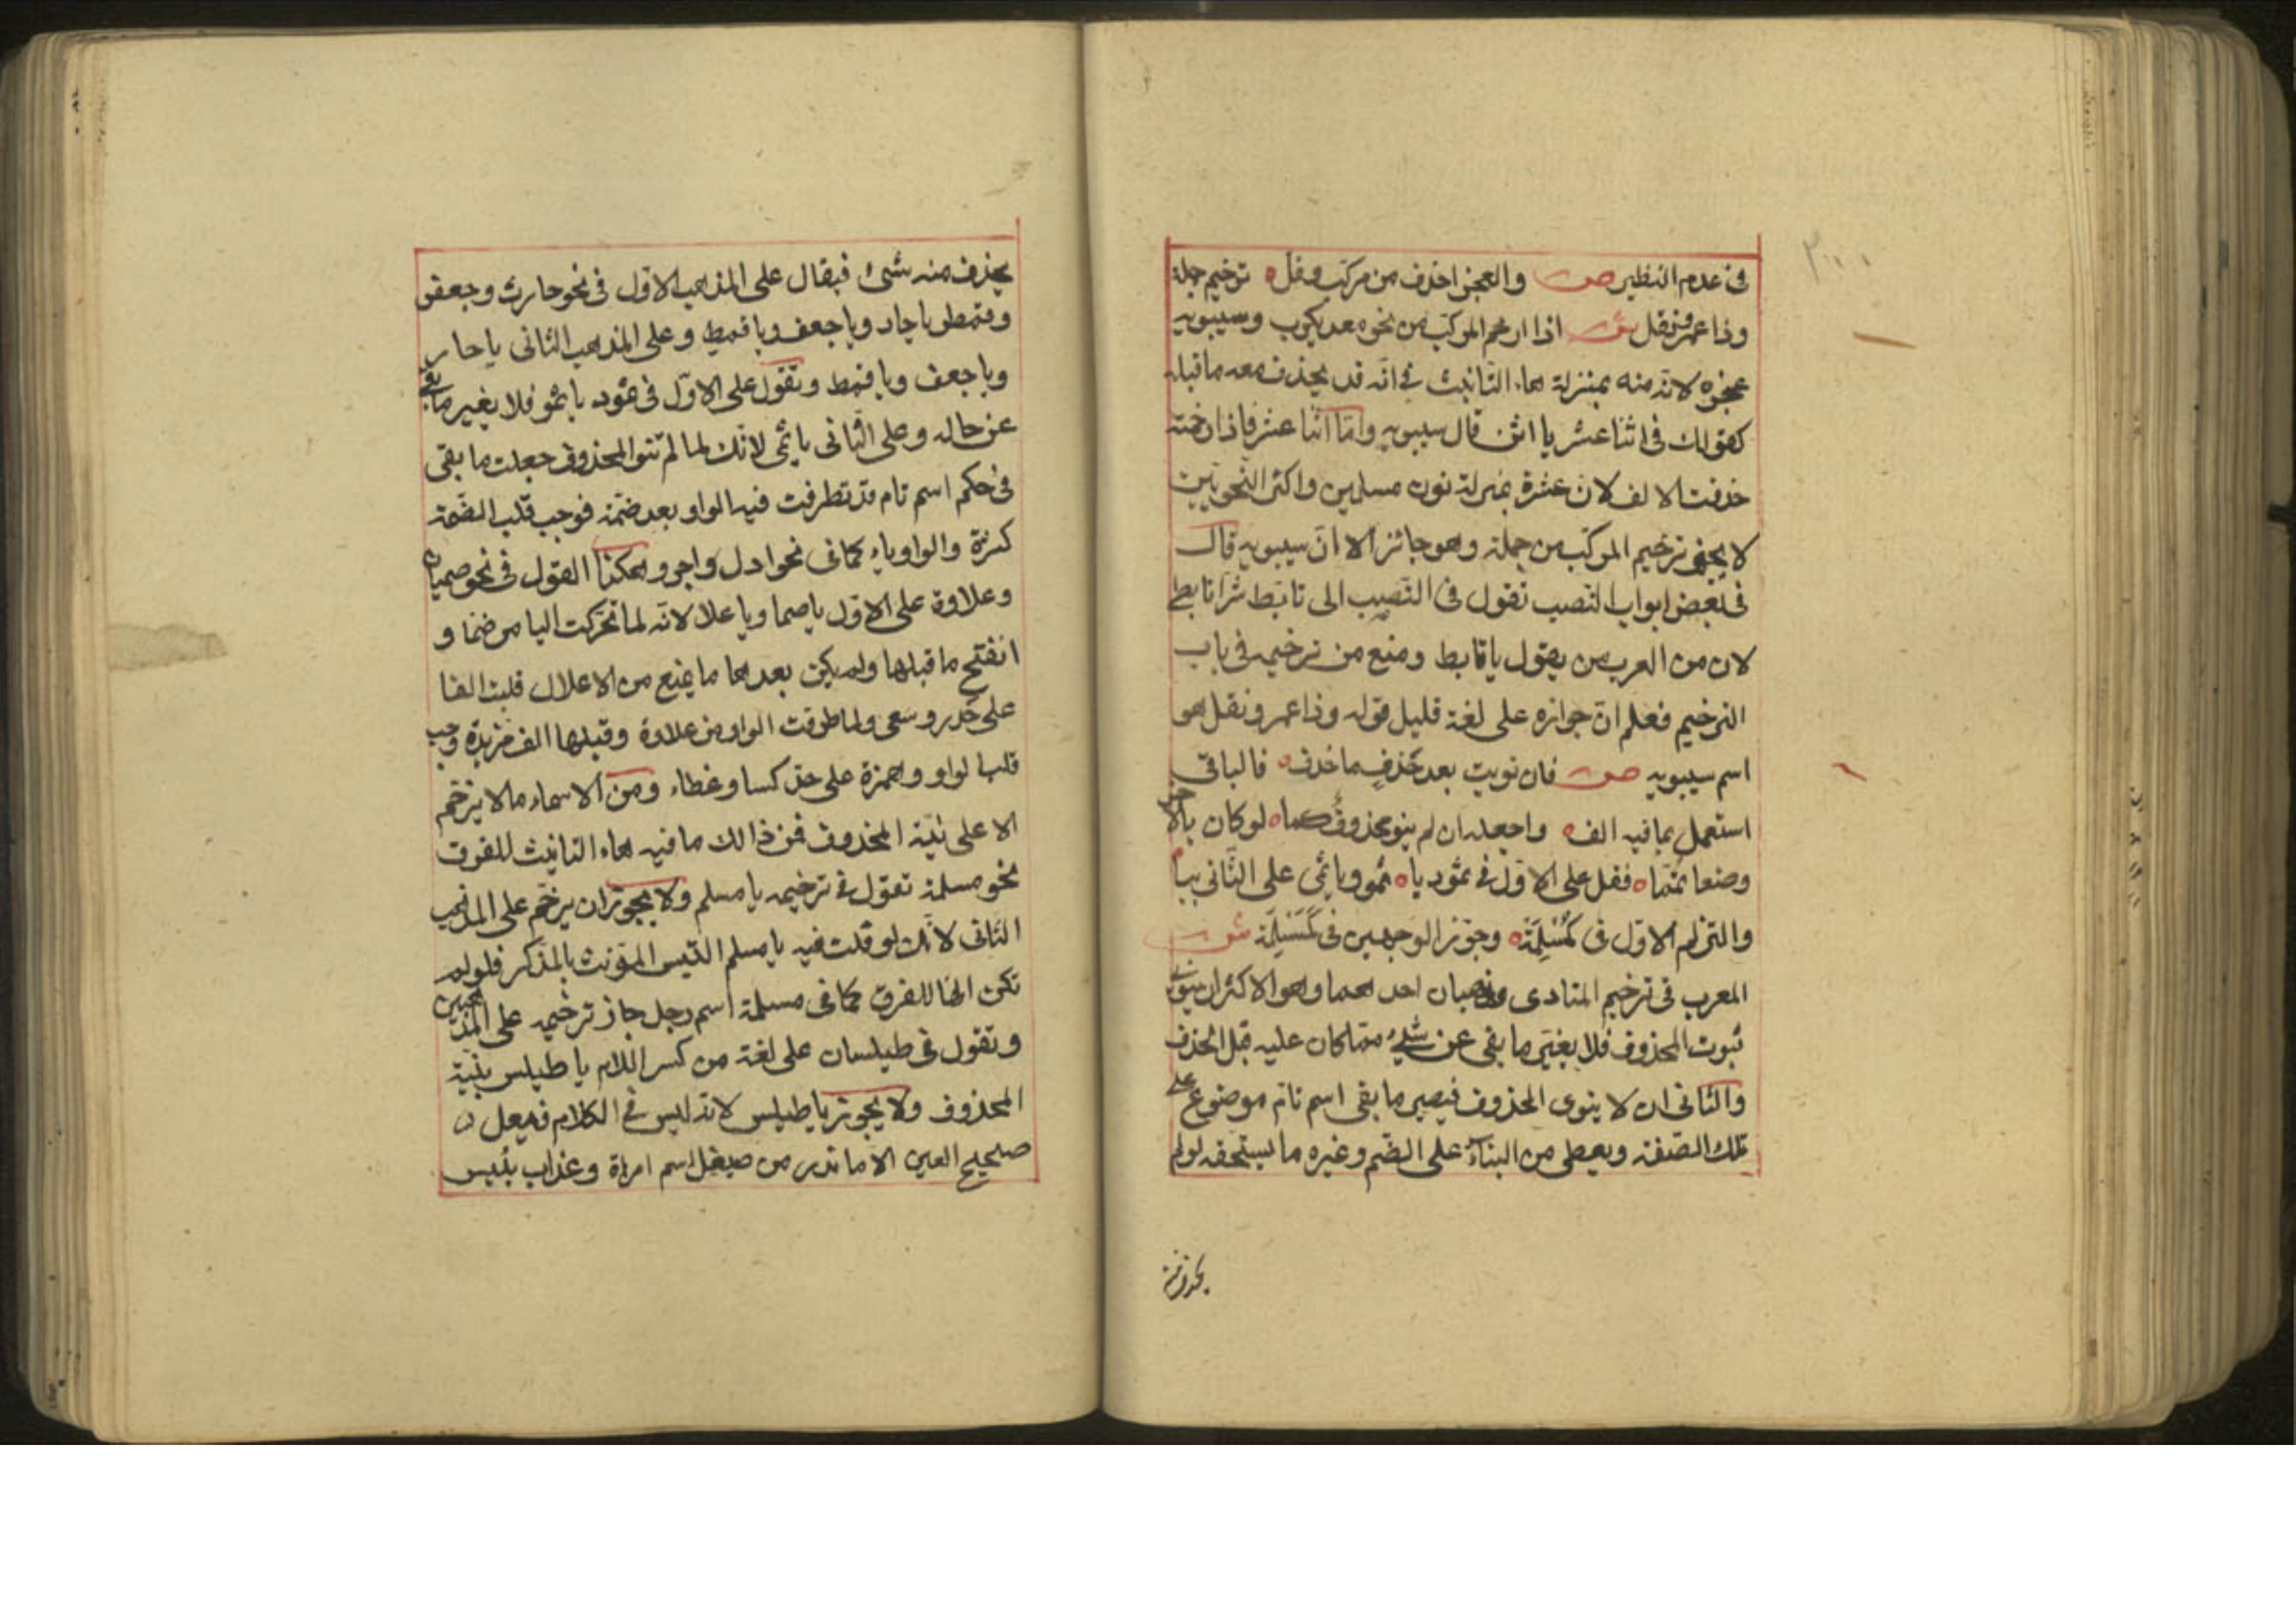 في عدم النظير ص والعجز احذف من مركب وقل ترخيم جملة
وذا عمرو نقل ش اذا ارخم المركب من نحو معد يكرب وسيبويه
عجزه لانه منه بمنزلة هاء التانيث في انه قد يحذف معه ما قبله
كقولك في اثنا عشر يا اثن قال سيبويه واما اثنا عشر فاذا رخمته
حذفت الالف لان عشرة بمنزلة نون مسلمين واكثر النحويين
لا يجيز ترخيم المركب من جملة وهو جائز الا ان سيبويه قال
في بعض ابواب النصب تقول في النصب الى تابط شرا تابطي
لان من العرب من يقول يا تابط ومنع من ترخيمه في باب
الترخيم فعلم ان جوازه على لغة قليل قوله وذا عمرو نقل هو
اسم سيبويه ص فان نويت بعد حذف ما حذف فالباقي
استعمل بما فيه الف واجعله ان لم ينو محذوف كما لو كان بالاخر
وضعا تمما فقل على الاول في ثمود يا ثمو ويا ثمي على الثاني بيا
والتزم الاول في كمُسْلِمَة وجوز الوجهين في كَمَسْلَمَة ش
المعرب في ترخيم المنادى مذهبان احدهما وهو الاكثر ان ينوى
ثبوت المحذوف فلا يغير ما بقى عن شيء مما كان عليه قبل الحذف
والثاني ان لا ينوى المحذوف فيصير ما بقى اسم تام موضوع على
تلك الصفة ويعطى من البناء على الضم وغيره ما يستحقه لو لم
يحذف منه
يحذف منه شئ فيقال على المذهب الاول في نحو حارث وجعفر
وقمطر يا حار ويا جعف ويا قمط وعلى المذهب الثاني يا حار
ويا جعف ويا قمط وتقول على الاول في ثمود يا ثمو فلا يغير ما بقى
عن حاله وعلى الثاني يا ثمي لانك لما لم تنو المحذوف جعلت ما بقى
في حكم اسم تام قد تطرفت فيه الواو بعد ضمة فوجب قلب الضمة
كسرة والواو ياء كما في نحو ادل واجر وهكذا القول في نحو صميان
وعلاوة على الاول يا صما ويا علا لانه لما تحركت اليا من ضما و
انفتح ما قبلها ولم يكن بعدها ما يمنع من الاعلال قلبت الفا
على حد رمى وسعى ولما طرفت الواو من علاوة وقبلها الف مزيدة وجب
قلب الواو همزة على حد كسا وغطاء ومن الاسماء ما لا يرخم
الا على نية المحذوف فمن ذالك ما فيه هاء التانيث للفرق
نحو مسلمة تقول في ترخيمه يا مسلم ولا يجوز ان يرخم على المذهب
الثاني لانك لو قلت فيه يا مسلم التبس المؤنث بالمذكر فلو لم
تكن الها للفرق كما في مسلمة اسم رجل جاز ترخيمه على المذهبين
وتقول في طيلسان على لغة من كسر اللام يا طيلس بنية
المحذوف ولا يجوز يا طيلس لانه ليس في الكلام فيعل
صحيح العين الا ما ندر من صيقل اسم امراة وعذاب بئيس